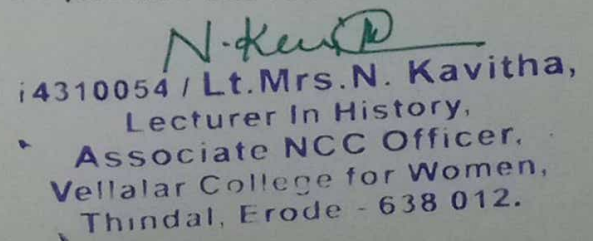 N. Kavi
i4310054 / Lt.Mrs.N. Kavitha,
Lecturer In History,
Associate NCC Officer,
Vellalar College for Women,
Thindal, Erode - 638 012.